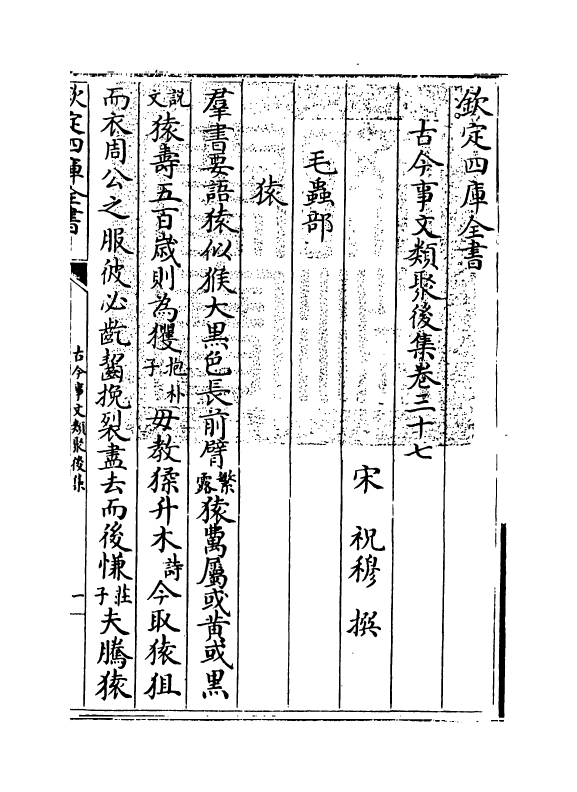 欽定四庫全書
古今事文類聚後集卷三十七
宋　祝穆　撰
毛蟲部
猿
羣書要語猿似猴大黑色長前臂繁露猿蜼屬或黄或黑
說文猿壽五百歳則為玃抱朴子毋教猱升木詩今取猿狙
而衣周公之服彼必齕齧挽裂盡去而後慊莊子夫騰猿
欽定四庫全書
古今事文類聚後集
一